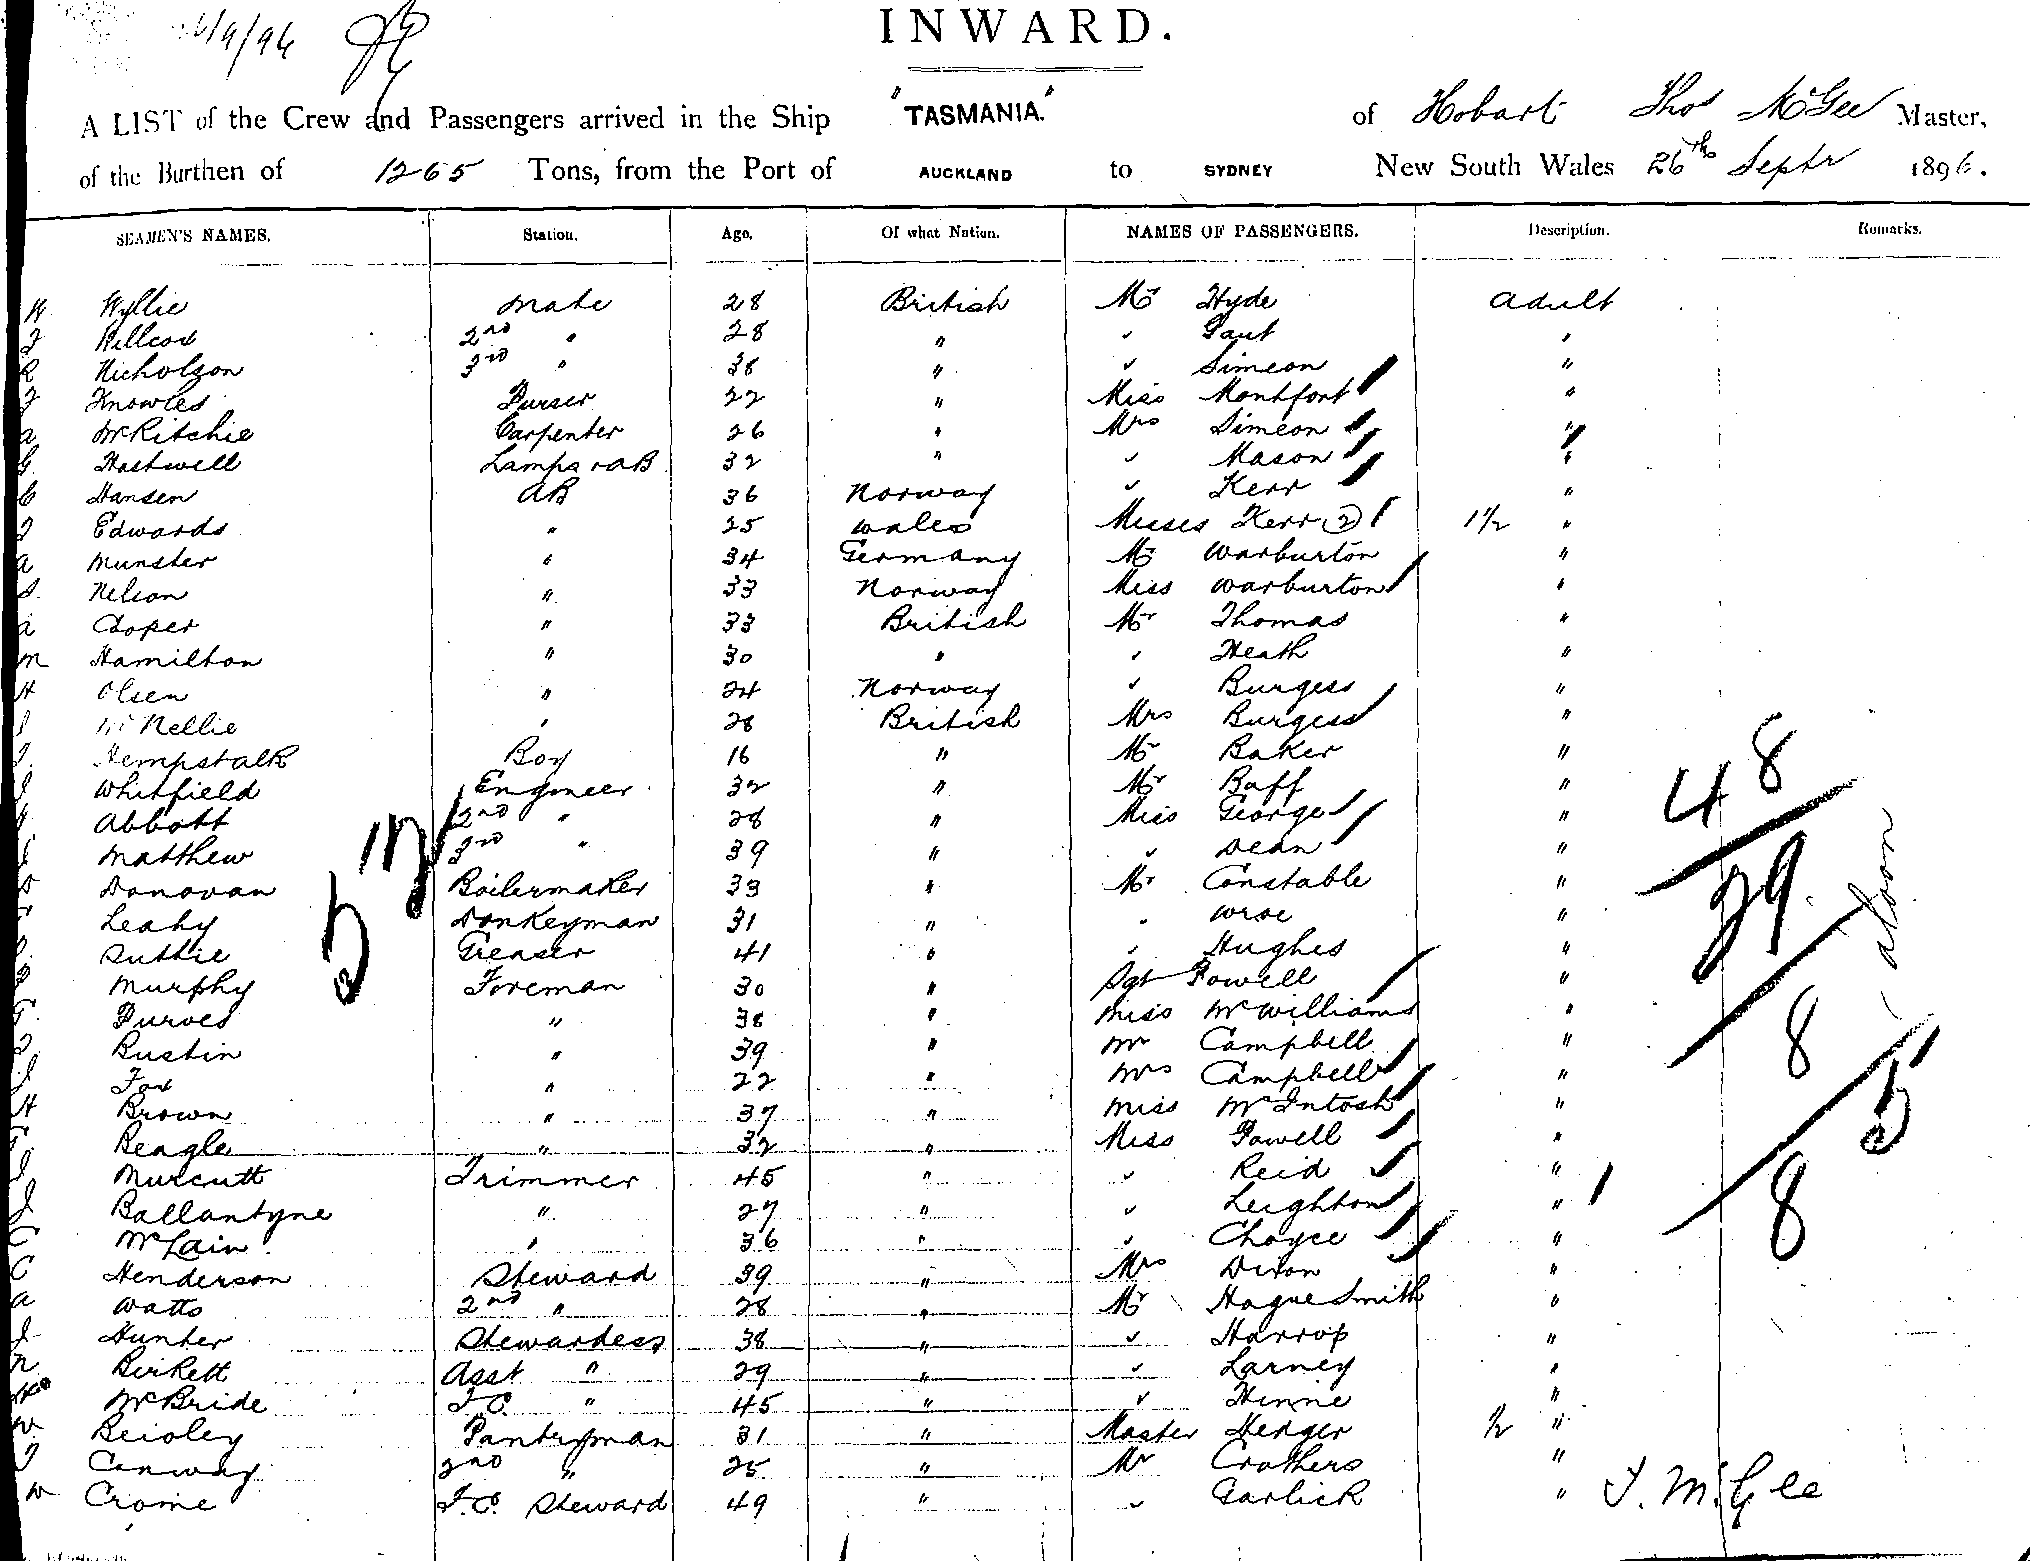 26/9/96
INWARD.
A LIST of the Crew and Passengers arrived in the Ship "TASMANIA." of Hobart Thos McGee Master,
of the Burthen of 1265 Tons, from the Port of AUCKLAND to SYDNEY New South Wales 26th Septr 1896.
SEAMEN'S NAMES. Station. Age. Of what Nation. NAMES OF PASSENGERS. Description. Remarks.
W Wyllie Mate 28 British Mr Hyde Adult
Willcox 2nd " 28 " " Gaut "
R Nicholson 3rd " 38 " " Simeon "
Knowles Purser 22 " Miss Montfort "
A McRitchie Carpenter 26 " Mrs Simeon "
G Hastwell Lamps & AB 32 " " Mason "
C Hansen AB 36 Norway " Kerr "
Edwards " 25 Wales Misses Kerr (2) 1 1/2 "
A Munster " 34 Germany Mr Warburton "
S. Nelson " 33 Norway Miss Warburton "
A Cooper " 33 British Mr Thomas "
M Hamilton " 30 " " Heath "
H Olsen " 24 Norway " Burgess "
J McNellie " 28 British Mrs Burgess "
Hempstalk Boy 16 " Mr Baker "
J Whitfield Engineer 32 " Mr Baff "
Abbott 2nd " 28 " Miss George "
J Matthew 3rd " 39 " " Dean "
Donovan Boilermaker 33 " Mr Constable "
Leahy Donkeyman 31 " " Wroe "
Duthie Greaser 41 " " Hughes "
Murphy Foreman 30 " Sgt Powell "
G. Purves " 38 " Miss McWilliams "
Bustin " 39 " Mr Campbell "
J Fox " 22 " Mrs Campbell "
H Brown " 37 " Miss McIntosh "
Beagle " 32 " Miss Powell "
J Murcutt Trimmer 45 " " Reid "
J Ballantyne " 27 " " Leighton "
C McLain " 36 " " Choyce "
C Henderson Steward 39 " Mrs Dixon "
A Watts 2nd " 28 " Mr Hague Smith "
J Hunter Stewardess 38 " " Harrop "
N Birkett Asst " 29 " " Larney "
Mrs McBride F.C. " 45 " " Hinne "
W Beioley Pantryman 31 " Master Hedger 1/2 "
J Conway 2nd " 25 " Mr Crothers "
W Crome F.C. Steward 49 " " Garlick "
T. McGee
48
29
8
8
5
57